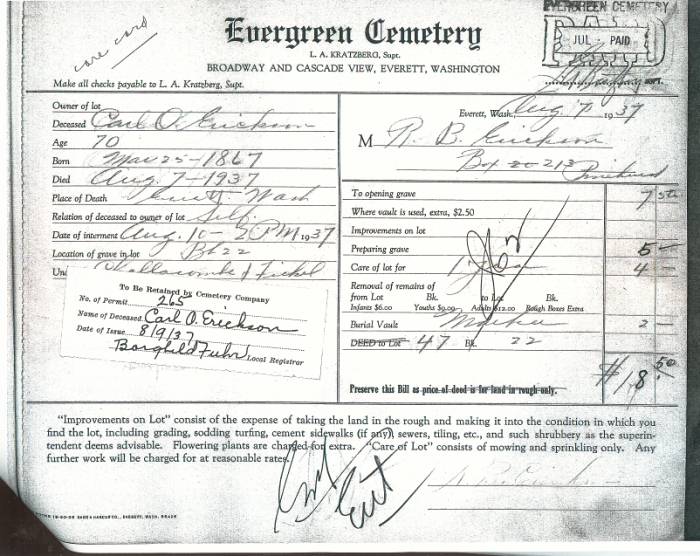 care card
Evergreen Cemetery
L. A. KRATZBERG, Supt.
BROADWAY AND CASCADE VIEW, EVERETT, WASHINGTON
Make all checks payable to L. A. Kratzberg, Supt.
EVERGREEN CEMETERY
PAID
JUL - PAID
Everett, Wash., Aug. 7 1937
M R. B. Erickson
Box 20-213
Owner of lot
Deceased Carl O. Erickson
Age 70
Born Mar 25-1867
Died Aug. 7-1937
Place of Death Everett, Wash
Relation of deceased to owner of lot Self.
Date of interment Aug. 10- 2 PM 1937
Location of grave in lot Bk 22
Challacombe & Fickel
To Be Retained by Cemetery Company
No. of Permit 265
Name of Deceased Carl O. Erickson
Date of Issue 8/9/37
Borghild Fuhr Local Registrar
To opening grave 7 50
Where vault is used, extra, $2.50
Improvements on lot
Preparing grave 5 —
Care of lot for 1 yr 4 —
Removal of remains of
from Lot Bk. to Lot Bk.
Infants $6.00 Youths $9.00 Adults $12.00 Rough Boxes Extra
Burial Vault Marker 2 —
DEED to Lot 47 Bk. 22
$18.50
Preserve this Bill as price of deed is for land in rough only.
"Improvements on Lot" consist of the expense of taking the land in the rough and making it into the condition in which you
find the lot, including grading, sodding turfing, cement sidewalks (if any) sewers, tiling, etc., and such shrubbery as the superin-
tendent deems advisable. Flowering plants are charged for extra. "Care of Lot" consists of mowing and sprinkling only. Any
further work will be charged for at reasonable rates.